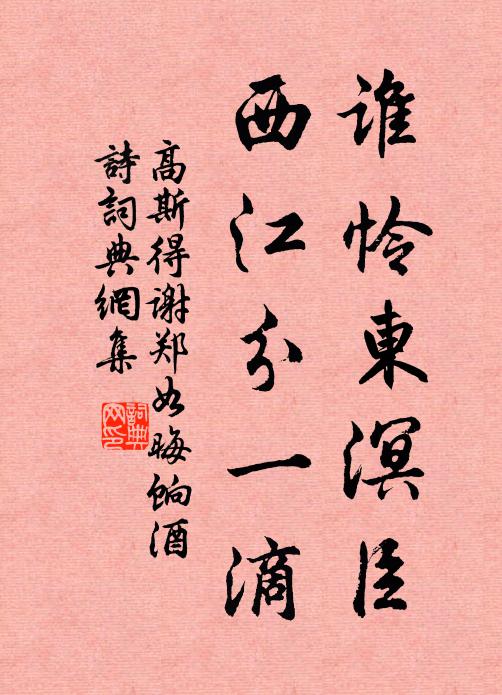 谁怜東溟臣
西江分一滴
高斯得谢郑如晦饷酒
詩詞典網集
詞典网印